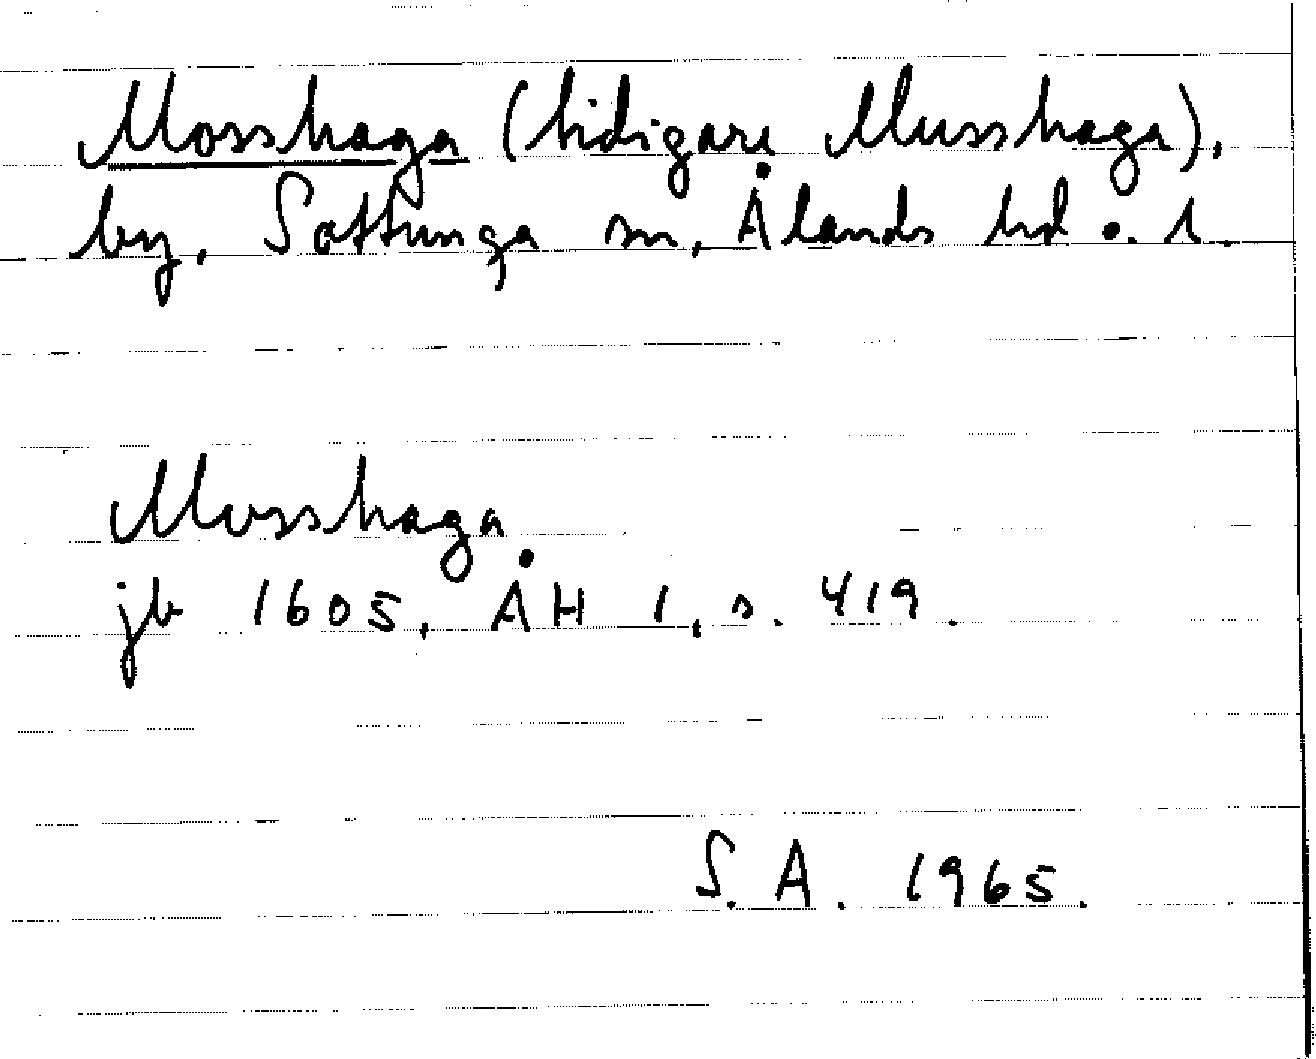 Mosshaga (tidigare Musshaga),
by, Sottunga sn, Ålands hd o. l.
Mosshaga
jb 1605, ÅH 1, s. 419.
S. A. 1965.